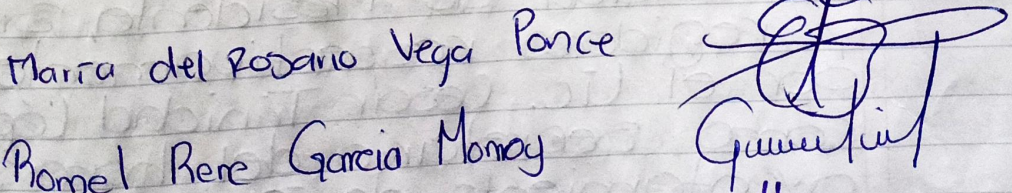 Maria del Rosario Vega Ponce
Romel Rene Garcia Monroy